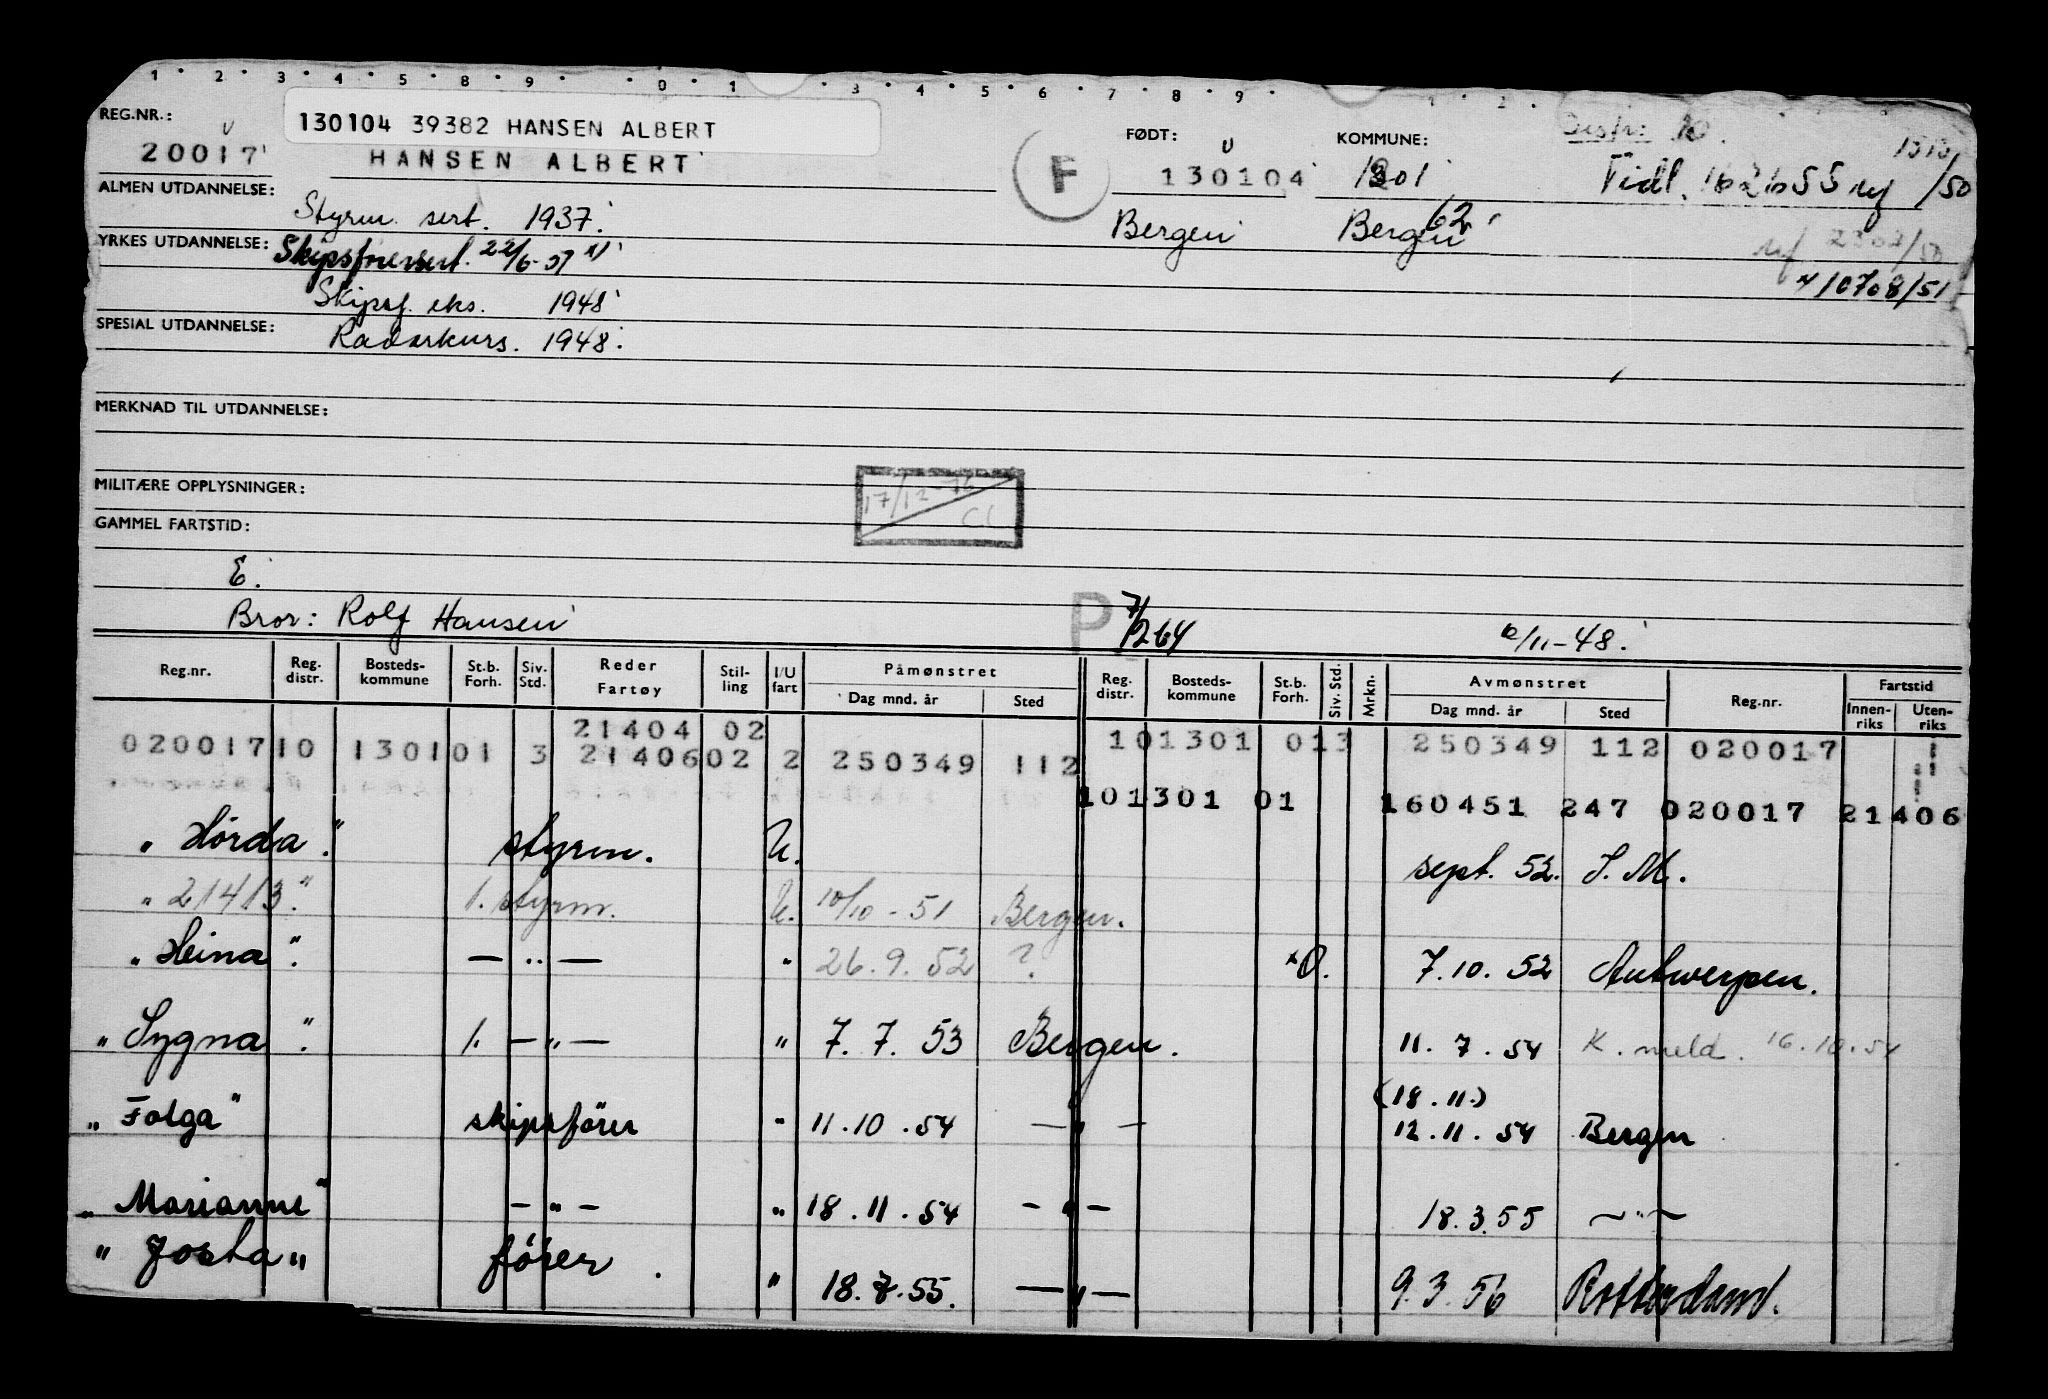 1 2 3 4 5 8 9 0 1 3 4 5 6 7 8 9 1 2
REG.NR.:
20017
130104 39382 HANSEN ALBERT
HANSEN ALBERT
F
FØDT:
130104
KOMMUNE:
1301
Distr. 10.
/50
ALMEN UTDANNELSE:
Styrm. sert. 1937.
Bergen
Bergen
62
YRKES UTDANNELSE:
Skipsførersert. 22/6-
10708/51
Skipsf. eks. 1948
SPESIAL UTDANNELSE:
Radarkurs. 1948.
MERKNAD TIL UTDANNELSE:
MILITÆRE OPPLYSNINGER:
17/12-76
CL
GAMMEL FARTSTID:
E.
Bror: Rolf Hansen
P 7/264
/11-48.
Reg.nr. Reg. distr. Bosteds-kommune St.b. Forh. Siv. Std. Reder Fartøy Stil-ling I/U fart Påmønstret Dag mnd. år Sted Reg. distr. Bosteds-kommune St.b. Forh. Siv. Std. Mrkn. Avmønstret Dag mnd. år Sted Reg.nr. Fartstid Innen-riks Uten-riks
21404 02
020017 10 1301 01 3 21406 02 2 250349 112 10 1301 01 3 250349 112 020017
10 1301 01 160451 247 020017 21406
„ Hörda." styrm. U. sept. 52. S.M.
„ 21413." 1. styrm. U. 10/10-51 Bergen.
„ Heina". — „ — " 26.9.52 ? *O. 7.10.52 Antwerpen.
„ Sygna". 1. — „ — " 7.7.53 Bergen. 11.7.54 K. meld. 16.10.54
(18.11.)
„ Folga" skipsförer " 11.10.54 — „ — 12.11.54 Bergen
„ Marianne" — „ — " 18.11.54 — „ — 18.3.55 — „ —
" Josta " förer. " 18.7.55. — „ — 9.3.56 Rotterdam.